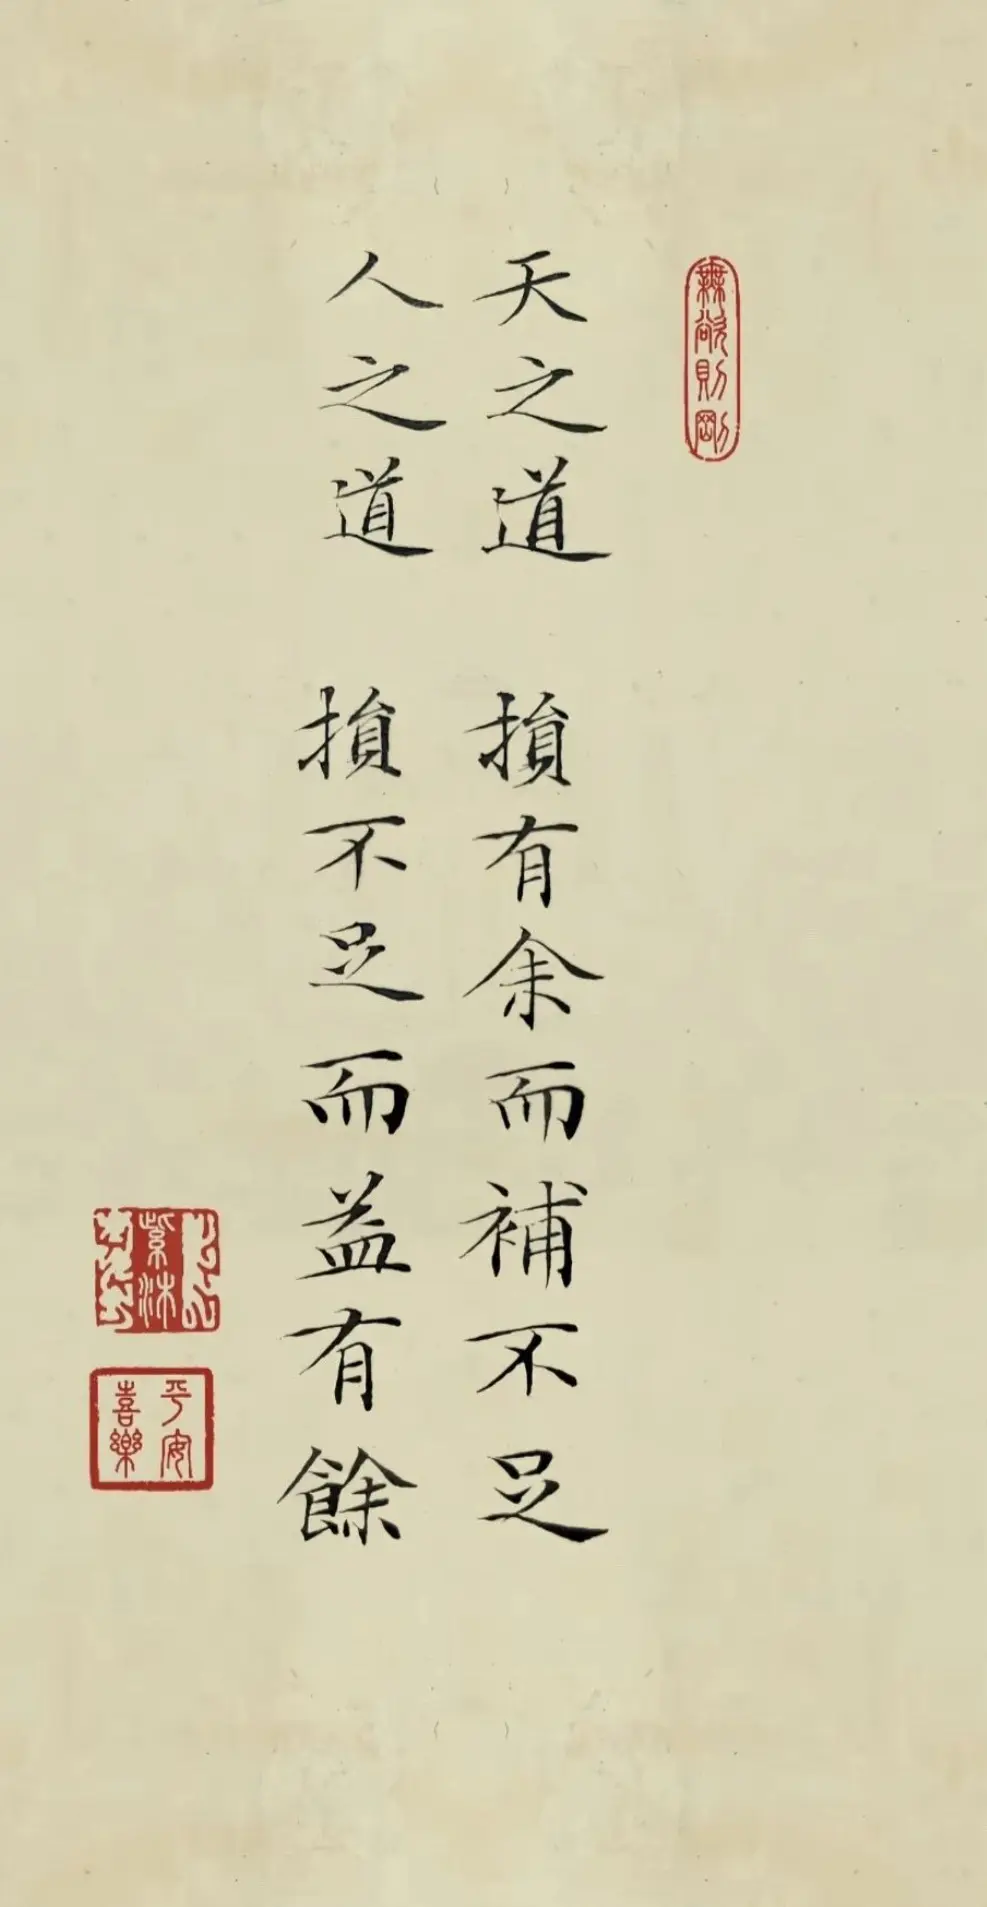 無欲則剛
天之道 損有余而補不足
人之道 損不足而益有餘
紫沐
平安
喜樂